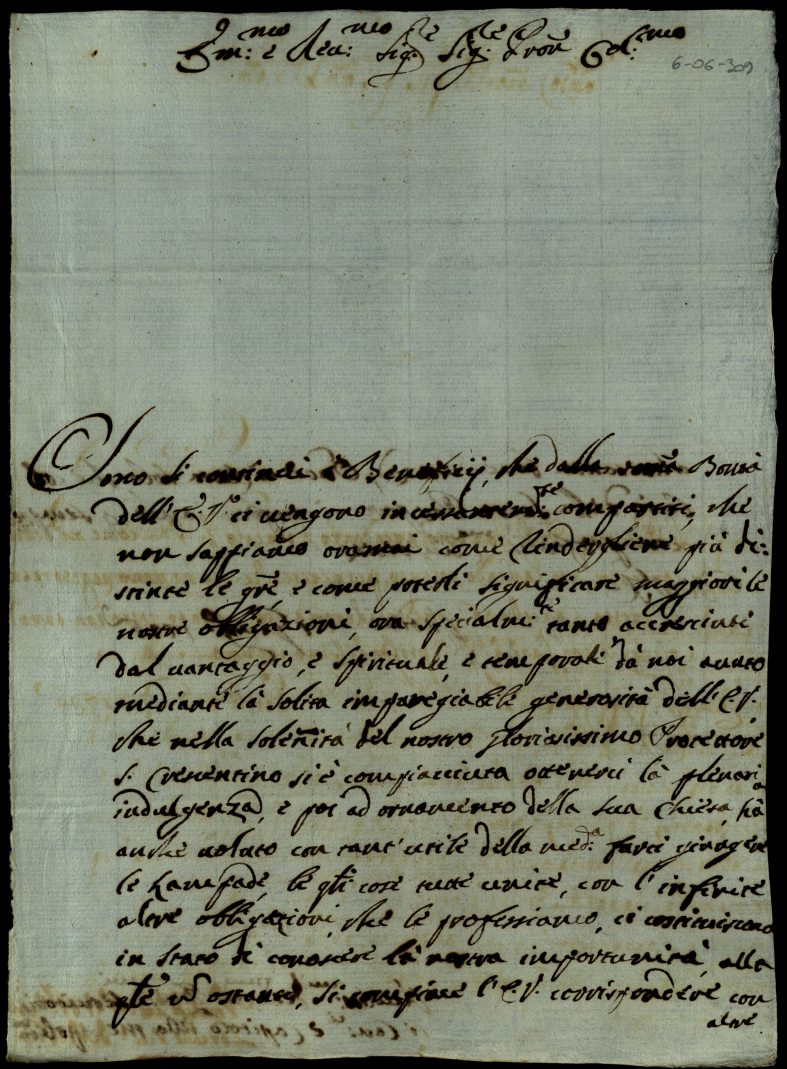 Em:mo e Reu:mo Sig:re Sig:re Pron Col:mo
6-06-309
Sono sì continui i Beneficij, che dalla somã Bontà
dell' E.V. ci vengono incessantem:te compartiti, che
non sappiamo oramai come rendergliene più di:
stinte le gr̃e, e come poterli significare maggiori le
nostre obligazioni, ora specialm:te tanto accresciute
dal vantaggio, e spirituale, e temporale dà noi avuto
mediante là solita imparegiabile generosità dell' E.V.
che nella soleñità del nostro gloriosissimo Protettore
S. Crescentino si è compiacciuta ottenerci là plenaria
indulgenza, e poi ad ornamento della sua Chiesa, hà
anche voluto con tant' utile della med:a farci giungere
le Lampade, le qti cose tutte unite, con l' infinite
altre obbligazioni che le professiamo, ci costituiscono
in stato di conoscere là nostra importunità, alla
qle ostante, si compiace l' E.V. corrispondere con
altre